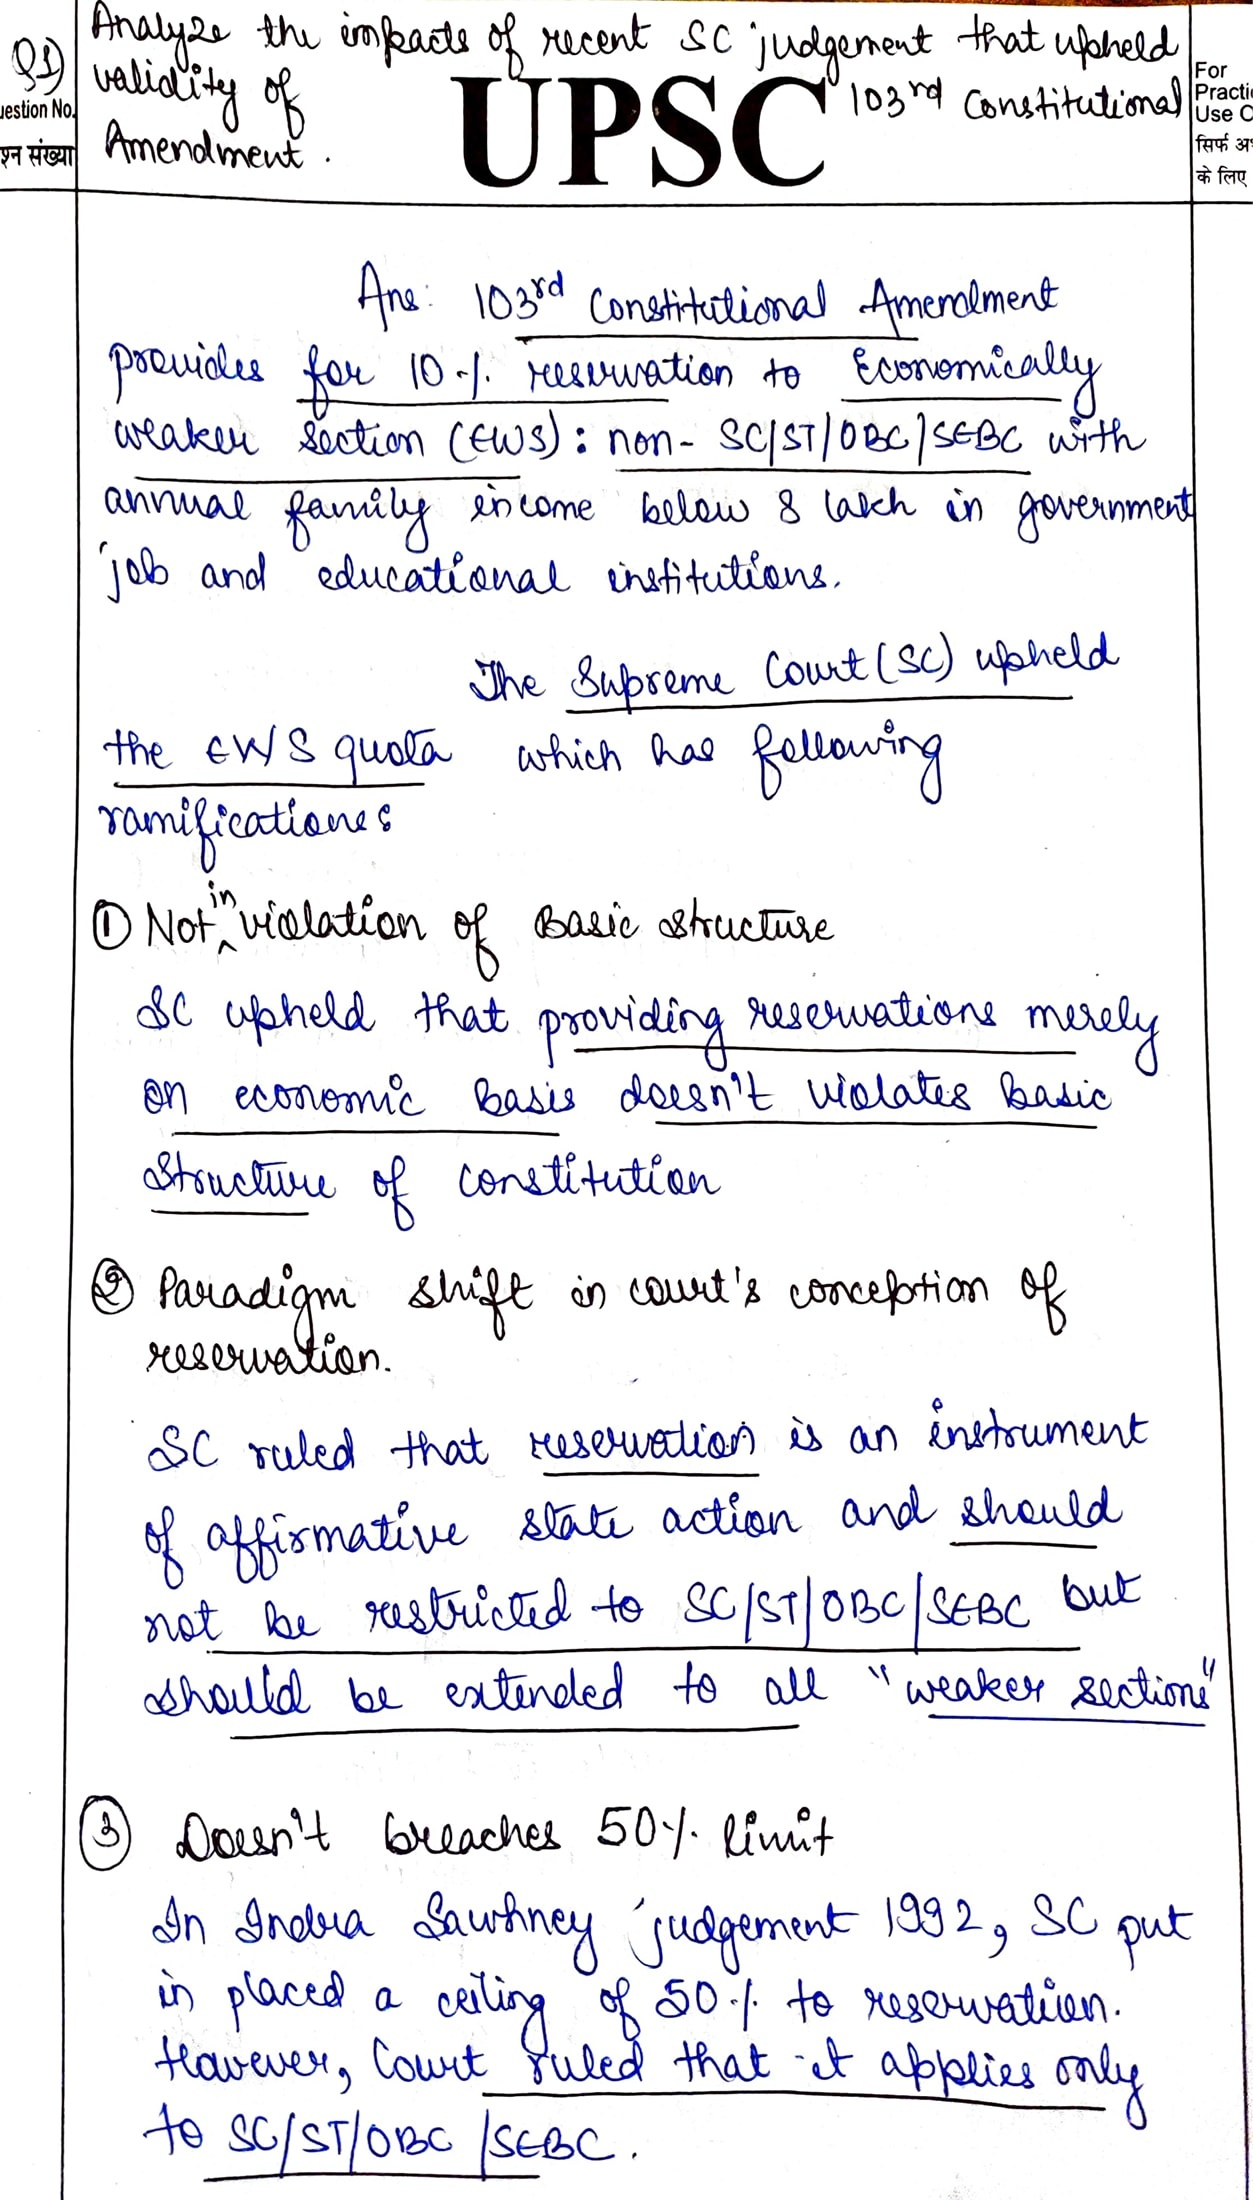 Analyze the impacts of recent SC judgement that upheld
Q1) validity of 103rd Constitutional
Amendment.
UPSC
uestion No.
श्न संख्या
For
Practi
Use O
सिर्फ अ
के लिए
Ans: 103rd Constitutional Amendment
provides for 10% reservation to Economically
weaker section (EWS): non- SC/ST/OBC/SEBC with
annual family income below 8 lakh in government
job and educational institutions.
The Supreme Court (SC) upheld
the EWS quota which has following
ramifications
① Not in violation of Basic structure
SC upheld that providing reservations merely
on economic basis doesn't violates basic
structure of constitution
② Paradigm shift in court's conception of
reservation.
SC ruled that reservation is an instrument
of affirmative state action and should
not be restricted to SC/ST/OBC/SEBC but
should be extended to all "weaker sections"
③ Doesn't breaches 50% limit
In Indra Sawhney judgement 1992, SC put
in placed a ceiling of 50% to reservation.
However, Court ruled that it applies only
to SC/ST/OBC/SEBC.